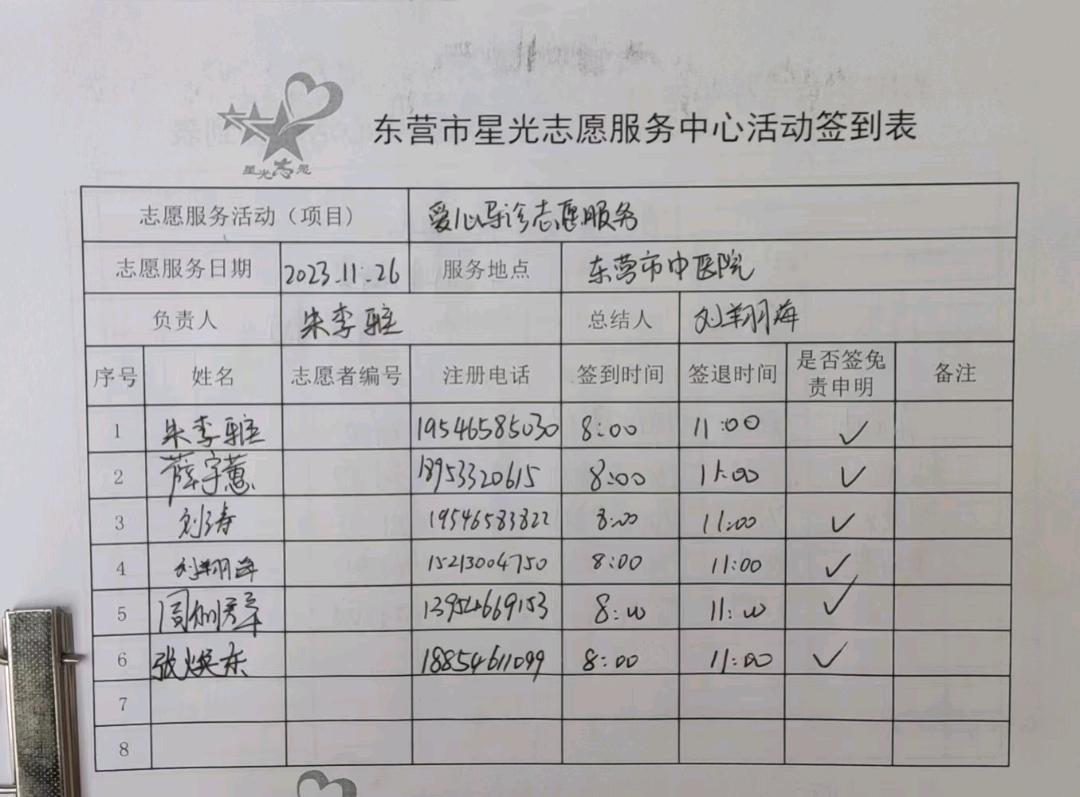 星光志愿
东营市星光志愿服务中心活动签到表
志愿服务活动（项目） 爱心导诊志愿服务
志愿服务日期 2023.11.26 服务地点 东营市中医院
负责人 朱李驻 总结人 刘翔海
序号 姓名 志愿者编号 注册电话 签到时间 签退时间 是否签免责申明 备注
1 朱李驻 19546585030 8:00 11:00 ✓
2 薛宇蕙 18953320615 8:00 11:00 ✓
3 刘涛 19546583822 8:00 11:00 ✓
4 刘翔海 15213004750 8:00 11:00 ✓
5 13954669153 8:00 11:00 ✓
6 张焕东 18854611099 8:00 11:00 ✓
7
8